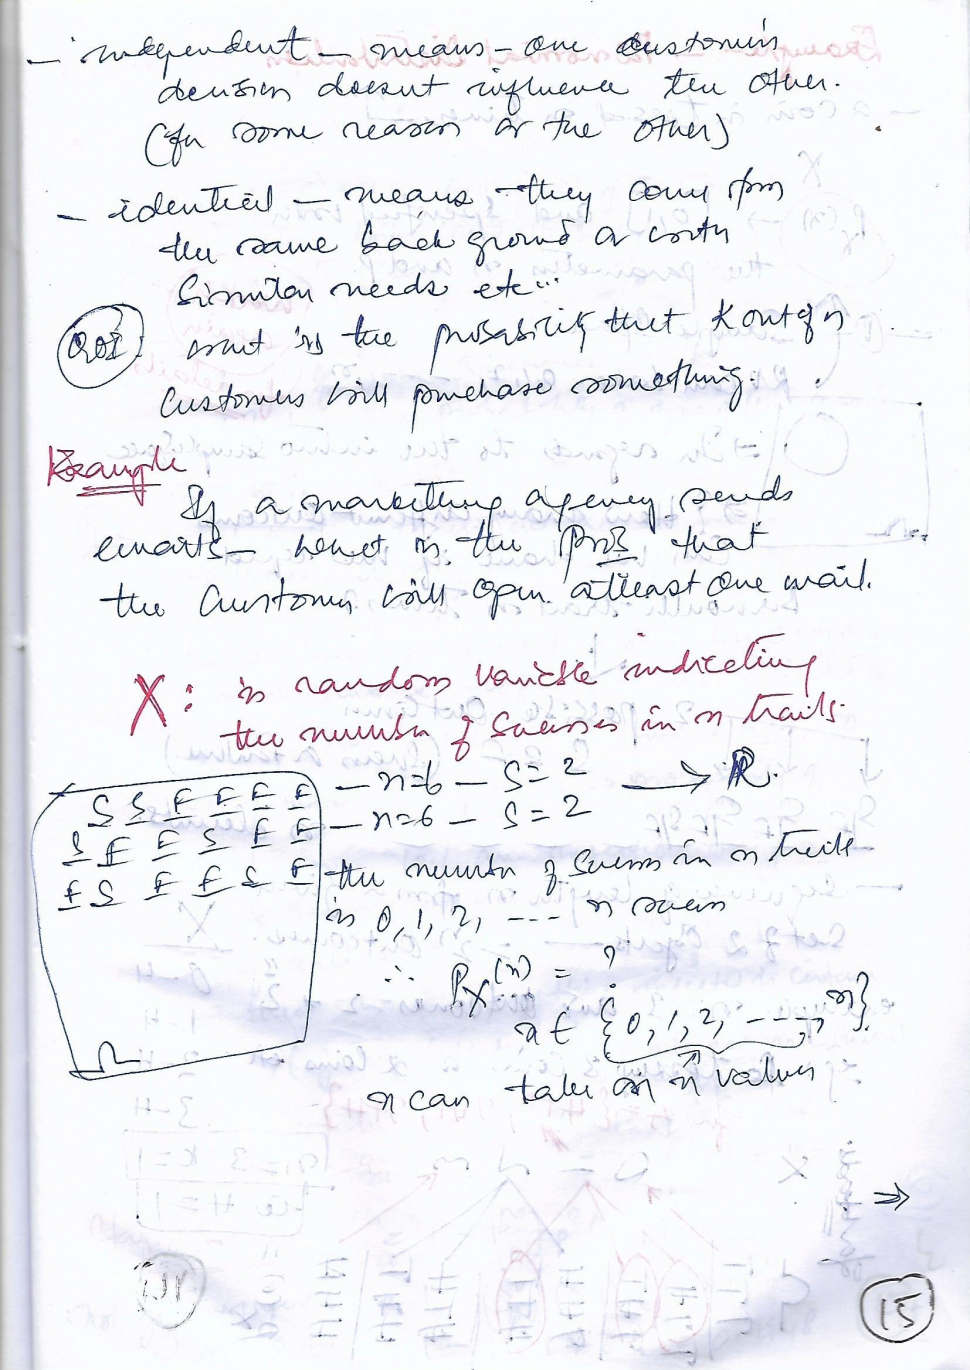 - independent - means - one customers
decision doesnt influence the other.
(for some reason or the other)
- identical - means they come from
the same back ground or with
Similar needs etc...
Q01: what is the probability that K out of n
Customers will purchase something.
Example
If a marketting agency sends
emails - what is the prob that
the Customer will open atleast one mail.
X: is random variable indicating
the number of Success in n trails.
S S F F F F - n=6 - S=2 → R.
S F F S F F - n=6 - S=2
F S F F S F the number of Success in n trails
is 0, 1, 2, --- n
∴ P_X(x) = ?
x ∈ {0, 1, 2, ----, n}
Ω
x can take on n values
⇒
15